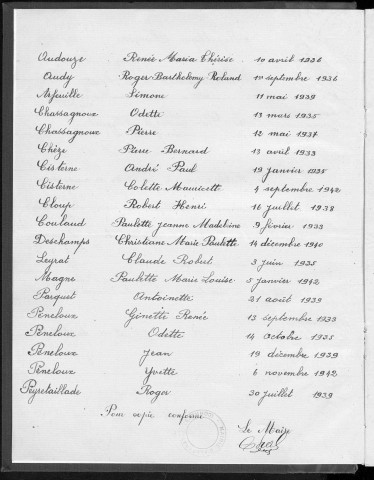 Audouze Renée Maria Thérèse 10 avril 1936
Audy Roger Barthelemy Roland 10 septembre 1936
Arfeuille Simone 11 mai 1939
Chassagnoux Odette 13 mars 1935
Chassagnoux Pierre 12 mai 1937
Chèze Pierre-Bernard 13 avril 1933
Cisterne André Paul 19 janvier 1935
Cisterne Colette Mauricette 4 septembre 1942
Cloup Robert Henri 16 juillet 1938
Coulaud Paulette Jeanne Madeleine 9 février 1933
Deschamps Christiane Marie Paulette 14 décembre 1940
Leyrat Claude Robert 3 juin 1935
Magne Paulette Marie Louise 5 janvier 1942
Parquet Antoinette 21 août 1939
Peneloux Ginette Renée 13 septembre 1933
Peneloux Odette 14 octobre 1935
Peneloux Jean 19 décembre 1939
Peneloux Yvette 6 novembre 1942
Peyretaillade Roger 30 juillet 1939
Pour copie conforme
Le Maire